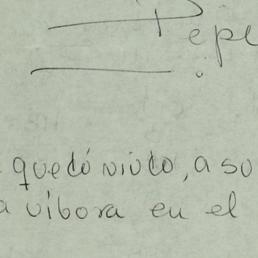 Pepe
quedó viudo, a su
a víbora en el